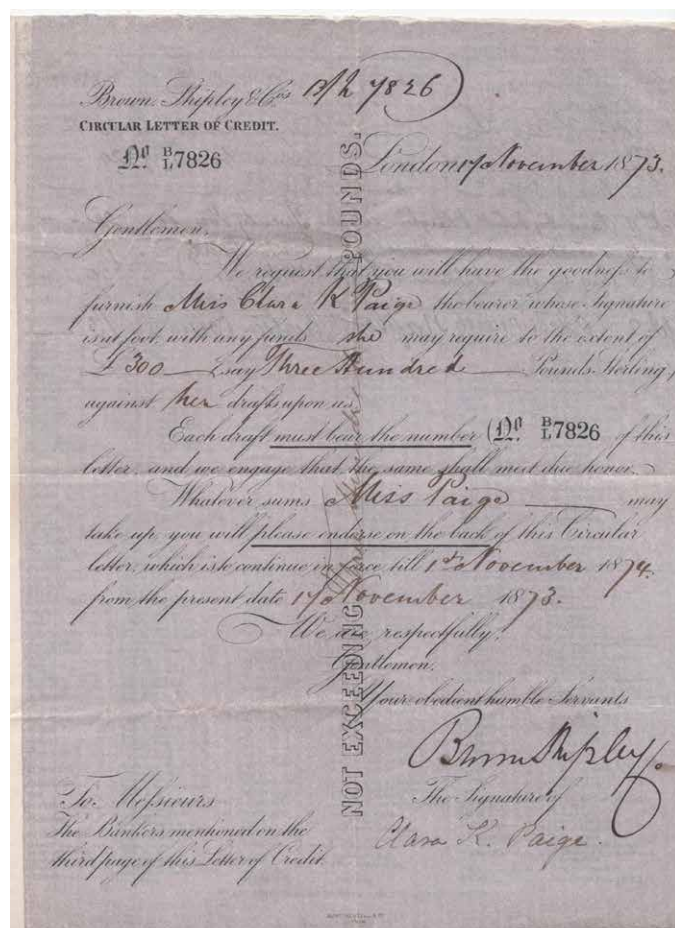 Brown, Shipley & Co's B/L 7826
CIRCULAR LETTER OF CREDIT.
No. B/L 7826
London 17 November 1873.
Gentlemen,
We request that you will have the goodness to
furnish Miss Clara K Paige the bearer whose Signature
is at foot, with any funds she may require to the extent of
£300 say Three Hundred Pounds Sterling,
against her drafts upon us.
Each draft must bear the number (No. B/L 7826 of this
letter, and we engage that the same shall meet due honor.
Whatever sums Miss Paige may
take up, you will please endorse on the back of this Circular
letter, which is to continue in force till 1st November 1874.
from the present date 17 November 1873.
We are, respectfully,
Gentlemen,
Your obedient humble Servants
Brown Shipley
To Messieurs
The Bankers mentioned on the
third page of this Letter of Credit.
The Signature of
Clara K. Paige.
NOT EXCEEDING Three Hundred POUNDS.